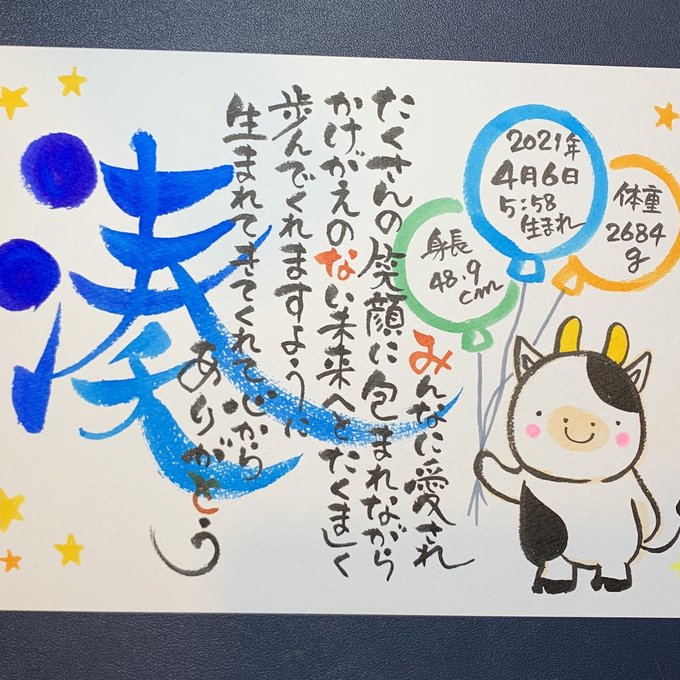 体重
2684
g
2021年
4月6日
5:58
生まれ
身長
48.9
cm
みんなに愛され
たくさんの笑顔に包まれながら
かけがえのない未来へとたくましく
歩んでくれますように
生まれてきてくれて心から
ありがとう
湊